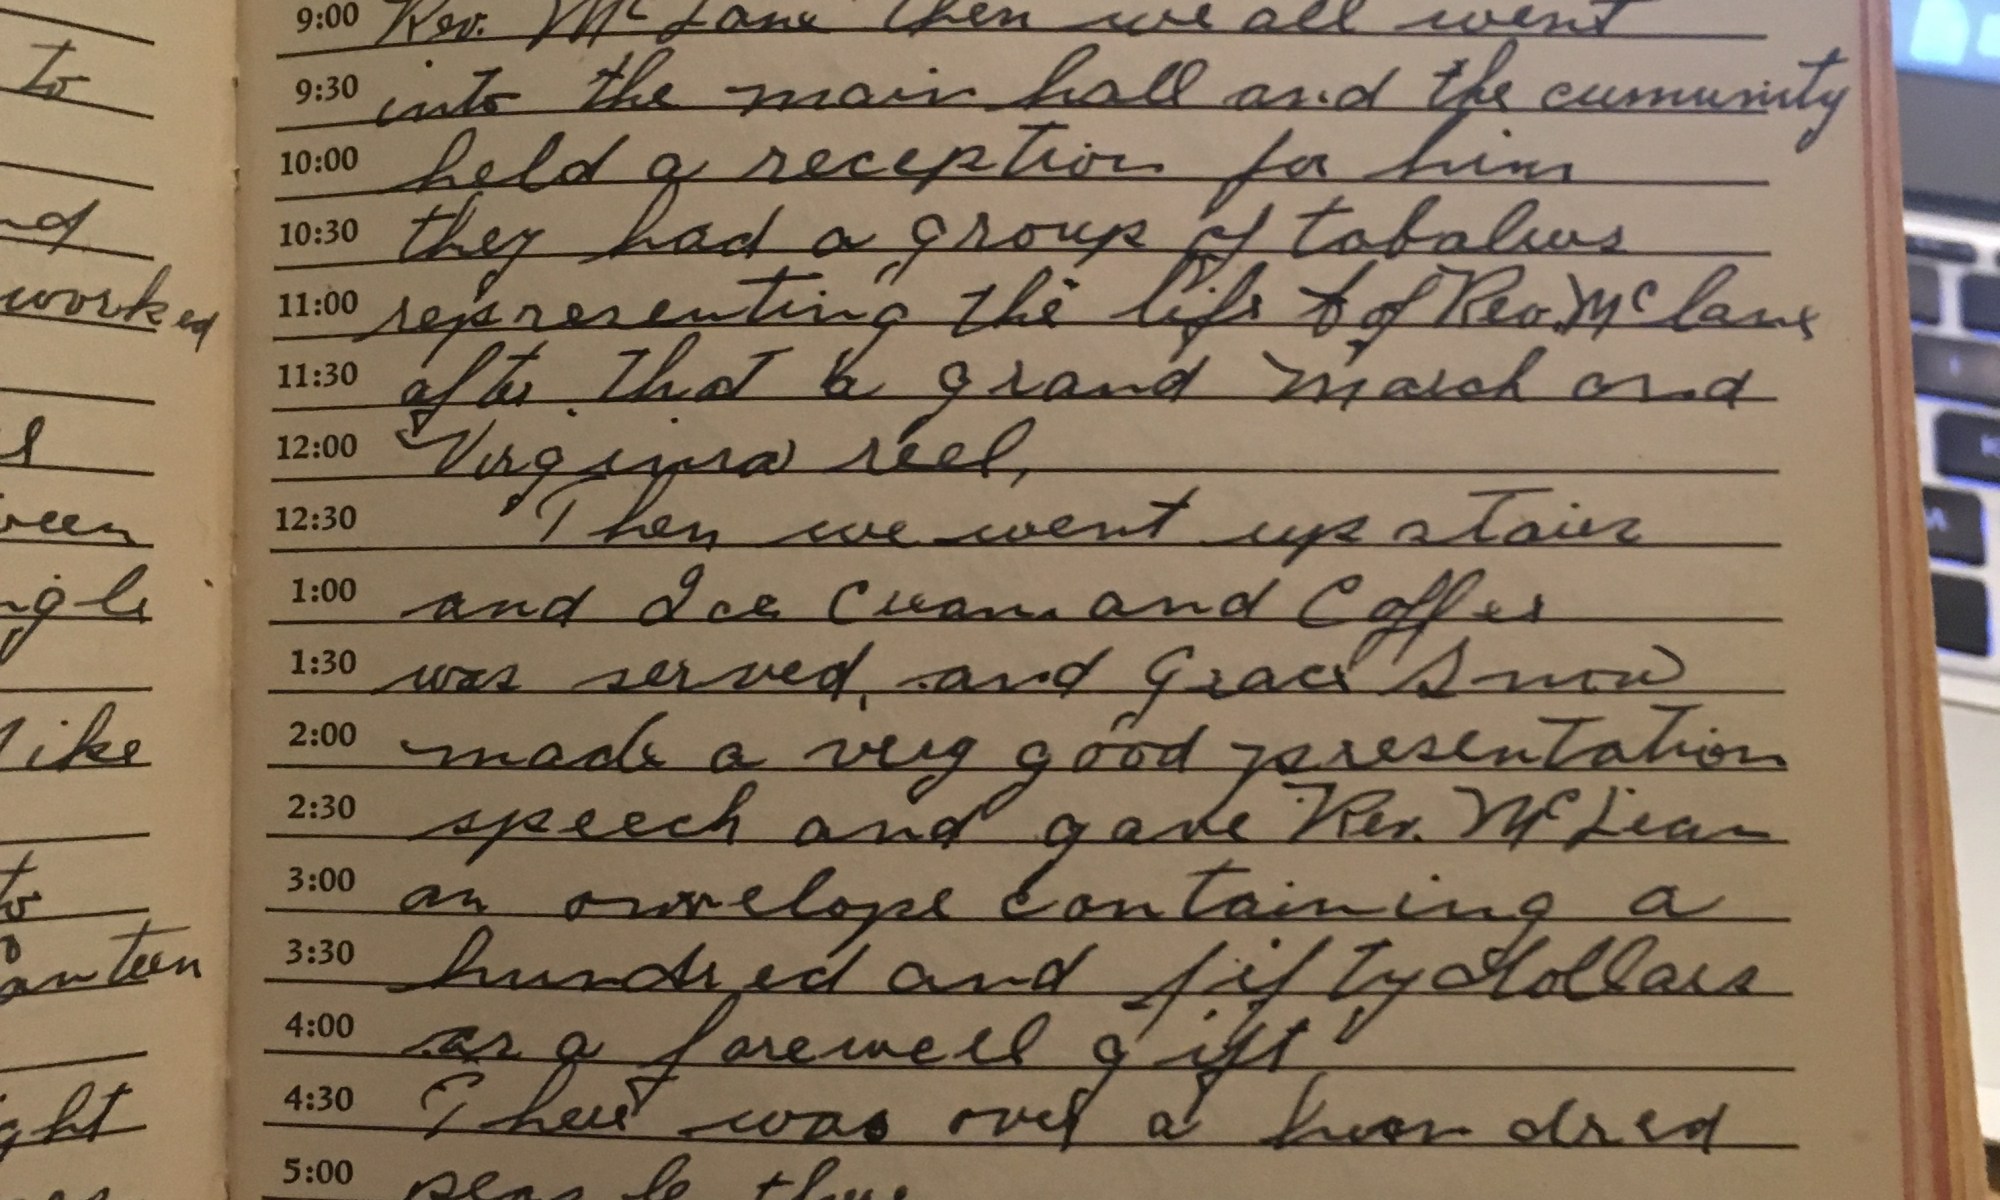 to
nd
worked
ngle
like
to
anteen
ght
9:00 Rev. McLane then we all went
9:30 into the main hall and the cumunity
10:00 held a reception for him
10:30 they had a group of tabalues
11:00 representing the life of Rev. McLane
11:30 after that a grand march and
12:00 Virginia reel,
12:30 Then we went up stairs
1:00 and Ice Cream and Coffee
1:30 was served, and Grace Snow
2:00 made a very good presentation
2:30 speech and gave Rev. McLean
3:00 an onvelope containing a
3:30 hundred and fifty dollars
4:00 as a farewell gift
4:30 There was over a hundred
5:00 people there